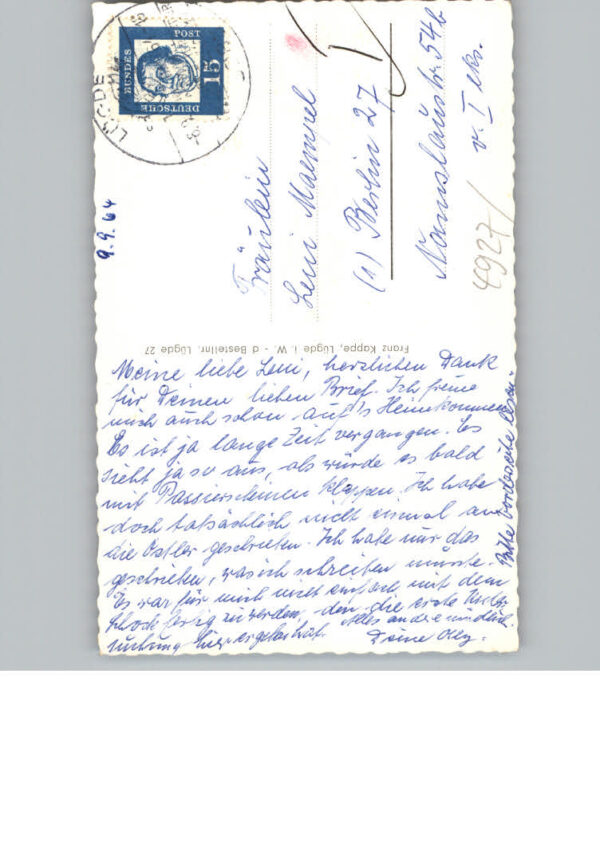 LÜGDE
DEUTSCHE
BUNDES
POST
15
9.9.64
Fräulein
Leni Maempel
(1) Berlin 27
Namslaustr. 54b
v. I lks.
4927/
Franz Kappe, Lügde i. W. - d Bestellnr. Lügde 27
Meine liebe Leni, herzlichen Dank
für Deinen lieben Brief. Ich freue
mich auch schon auf's Heimkommen
Es ist ja lange Zeit vergangen. Es
sieht ja so aus, als würde es bald
mit Passierscheinen klappen. Ich habe
doch tatsächlich nicht einmal an
die Ostler geschrieben. Ich habe nur das
geschrieben, was ich schreiben musste.
Es war für mich nicht einfach mit dem
Schock fertig zu werden, den die erste
suchung hier ergeben hat. Alles andere mündlich
Deine
Bitte Vorderseite lesen